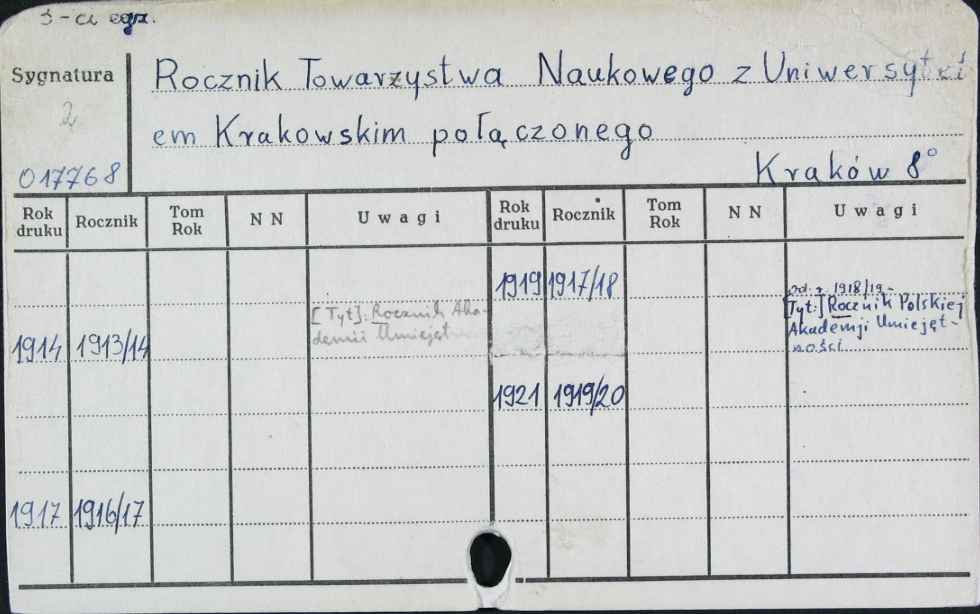 3-ci egz.
Sygnatura
2
017768
Rocznik Towarzystwa Naukowego z Uniwersytetki
em Krakowskim połączonego
Kraków 8°
Rok druku Rocznik Tom Rok N N Uwagi Rok druku Rocznik Tom Rok N N Uwagi
1919 1917/18
od r. 1918/19 -
[Tyt:] Rocznik Polskiej
Akademji Umiejęt-
ności
[Tyt]: Rocznik Aka-
demii Umiejęt
1914 1913/14
1921 1919/20
1917 1916/17